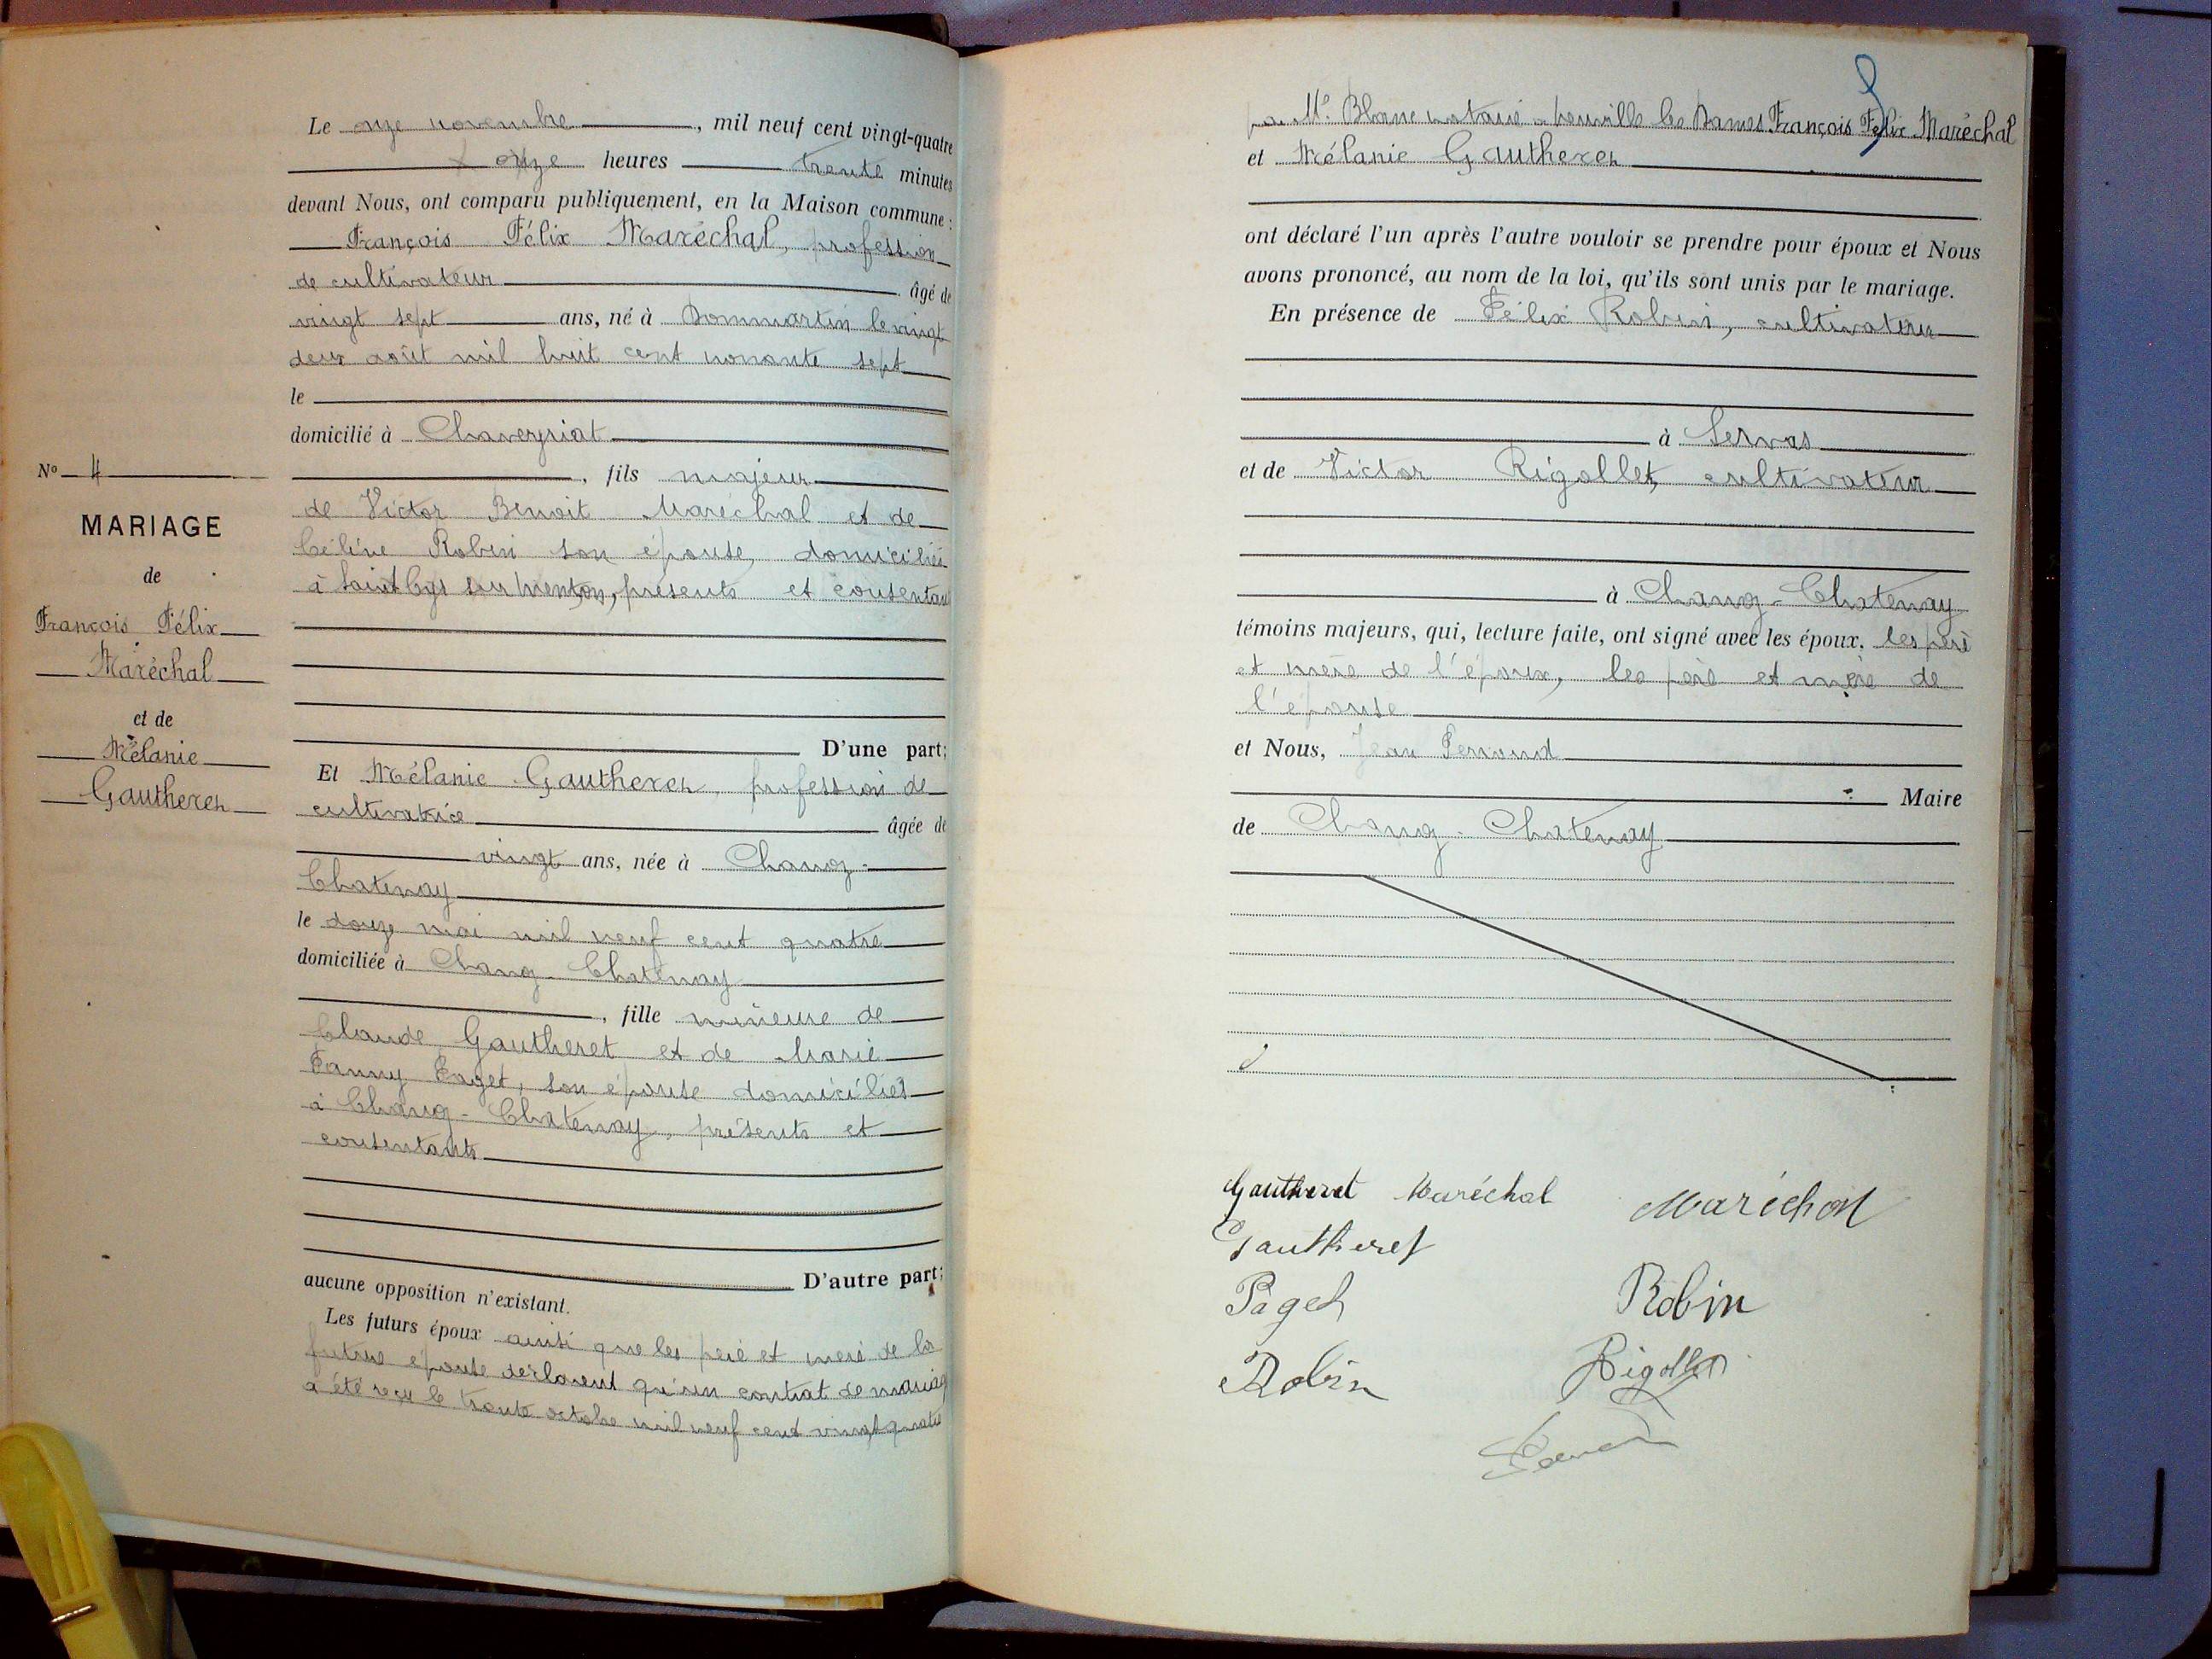 Le onze novembre, mil neuf cent vingt-quatre
onze heures trente minutes
devant Nous, ont comparu publiquement, en la Maison commune :
François Félix Maréchal, profession
de cultivateur âgé de
vingt sept ans, né à Dommartin le vingt
deux août mil huit cent nonante sept
le
domicilié à Chaveyriat
, fils majeur
de Victor Benoit Maréchal et de
Céline Robin son épouse, domiciliés
à Saint Cyr sur Menton, présents et consentan
D'une part;
Et Mélanie Gautheret, profession de
cultivatrice âgée de
vingt ans, née à Chanoz-
Chatenay
le douze mai mil neuf cent quatre
domiciliée à Chanoz-Chatenay
, fille mineure de
Claude Gautheret et de Marie
Fanny Paget, son épouse domiciliés
à Chanoz-Chatenay, présents et
consentants
D'autre part;
aucune opposition n'existant.
Les futurs époux ainsi que les père et mère de la
future épouse déclarent qu'un contrat de mariage
a été reçu le trente octobre mil neuf cent vingt quatre
No 4
MARIAGE
de
François Félix
Maréchal
et de
Mélanie
Gautheret
par Me Blanc notaire à Neuville les Dames François Félix Maréchal
et Mélanie Gautheret
ont déclaré l'un après l'autre vouloir se prendre pour époux et Nous
avons prononcé, au nom de la loi, qu'ils sont unis par le mariage.
En présence de Félix Robin, cultivateur
à Servas
et de Victor Rigollet, cultivateur
à Chanoz-Chatenay
témoins majeurs, qui, lecture faite, ont signé avec les époux, les père
et mère de l'époux, les père et mère de
l'épouse
et Nous, Jean Perraud
Maire
de Chanoz-Chatenay
Gautheret Maréchal Maréchal
Gautheret
Paget Robin
Robin Rigollet